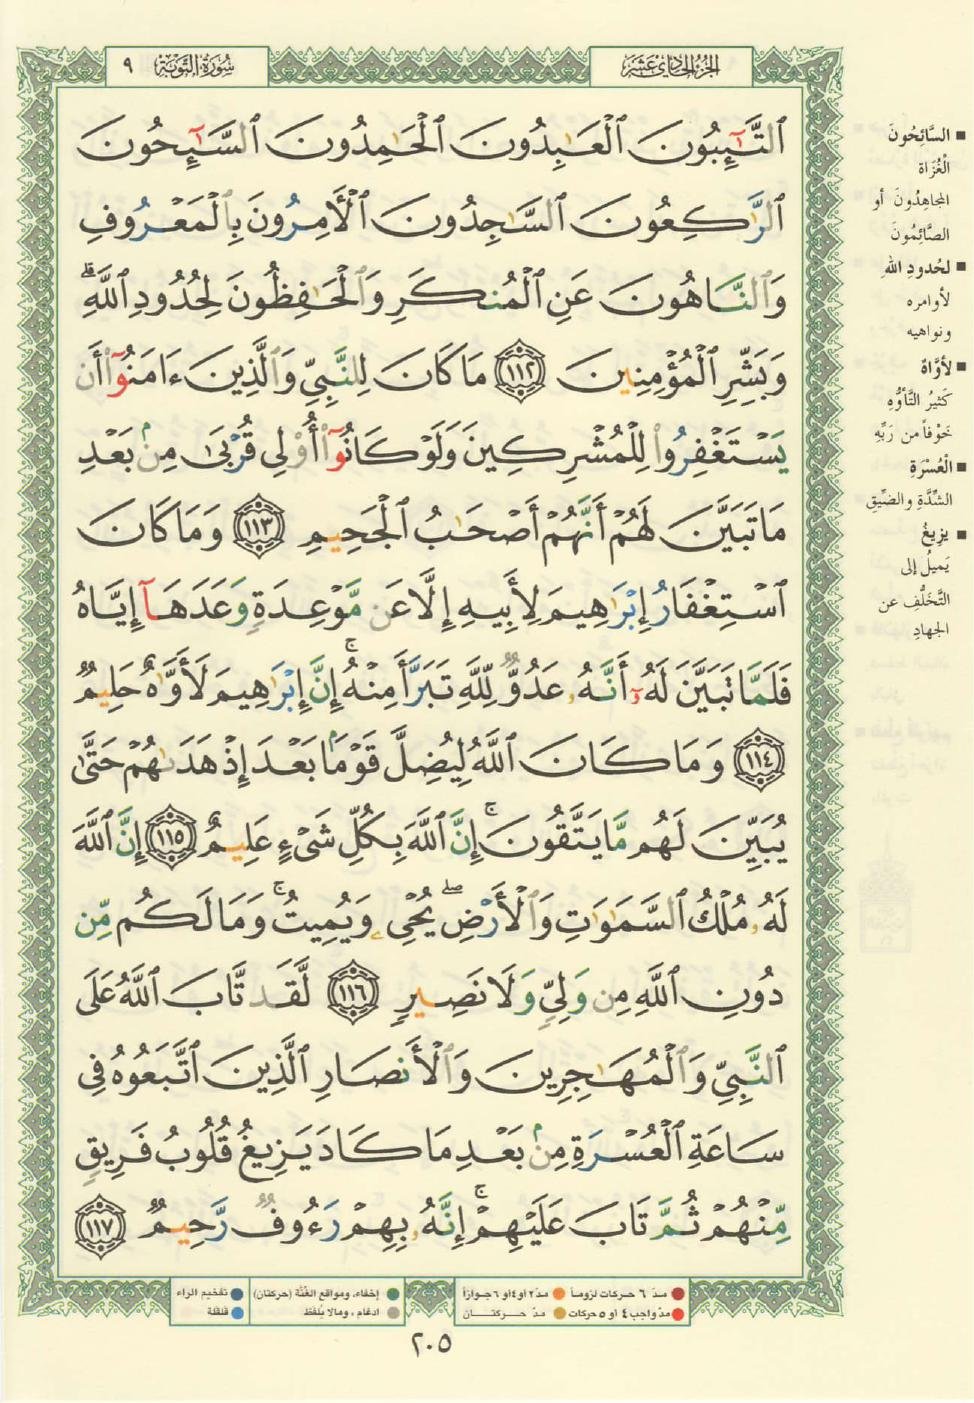 الجزء الحادي عشر
سورة التوبة ٩
ٱلتَّـٰٓئِبُونَ ٱلْعَـٰبِدُونَ ٱلْحَـٰمِدُونَ ٱلسَّـٰٓئِحُونَ
ٱلرَّٰكِعُونَ ٱلسَّـٰجِدُونَ ٱلْأَمِرُونَ بِٱلْمَعْرُوفِ
وَٱلنَّاهُونَ عَنِ ٱلْمُنكَرِ وَٱلْحَـٰفِظُونَ لِحُدُودِ ٱللَّهِ ۗ
وَبَشِّرِ ٱلْمُؤْمِنِينَ ١١٢ مَا كَانَ لِلنَّبِيِّ وَٱلَّذِينَ ءَامَنُوٓا۟ أَن
يَسْتَغْفِرُوا۟ لِلْمُشْرِكِينَ وَلَوْ كَانُوٓا۟ أُو۟لِى قُرْبَىٰ مِنۢ بَعْدِ
مَا تَبَيَّنَ لَهُمْ أَنَّهُمْ أَصْحَـٰبُ ٱلْجَحِيمِ ١١٣ وَمَا كَانَ
ٱسْتِغْفَارُ إِبْرَٰهِيمَ لِأَبِيهِ إِلَّا عَن مَّوْعِدَةٍ وَعَدَهَآ إِيَّاهُ
فَلَمَّا تَبَيَّنَ لَهُۥٓ أَنَّهُۥ عَدُوٌّ لِّلَّهِ تَبَرَّأَ مِنْهُ ۚ إِنَّ إِبْرَٰهِيمَ لَأَوَّٰهٌ حَلِيمٌ
١١٤ وَمَا كَانَ ٱللَّهُ لِيُضِلَّ قَوْمًۢا بَعْدَ إِذْ هَدَىٰهُمْ حَتَّىٰ
يُبَيِّنَ لَهُم مَّا يَتَّقُونَ ۚ إِنَّ ٱللَّهَ بِكُلِّ شَىْءٍ عَلِيمٌ ١١٥ إِنَّ ٱللَّهَ
لَهُۥ مُلْكُ ٱلسَّمَـٰوَٰتِ وَٱلْأَرْضِ ۖ يُحْىِۦ وَيُمِيتُ ۚ وَمَا لَكُم مِّن
دُونِ ٱللَّهِ مِن وَلِىٍّ وَلَا نَصِيرٍ ١١٦ لَّقَد تَّابَ ٱللَّهُ عَلَى
ٱلنَّبِىِّ وَٱلْمُهَـٰجِرِينَ وَٱلْأَنصَارِ ٱلَّذِينَ ٱتَّبَعُوهُ فِى
سَاعَةِ ٱلْعُسْرَةِ مِنۢ بَعْدِ مَا كَادَ يَزِيغُ قُلُوبُ فَرِيقٍ
مِّنْهُمْ ثُمَّ تَابَ عَلَيْهِمْ ۚ إِنَّهُۥ بِهِمْ رَءُوفٌ رَّحِيمٌ ١١٧
■ السَّائِحُونَ
الْغُزَاة
المجاهِدُونَ أو
الصَّائِمُونَ
■ لحُدودِ اللهِ
لأوامره
ونواهيه
■ لأوَّاهٌ
كَثيرُ التَّأوُّهِ
خَوْفاً من رَبِّهِ
■ الْعُسْرَةِ
الشِّدَّةِ والضِّيقِ
■ يزِيغُ
يَميلُ إلى
التَّخَلُّفِ عن
الجهادِ
مدّ ٦ حركات لزوماً مدّ ٢ أو ٤ أو ٦ جوازاً
مدّ واجب ٤ أو ٥ حركات مدّ حركتان
إخفاء، ومواقع الغُنَّة (حركتان) تفخيم الراء
ادغام، وما لا يُلفَظ قلقلة
٢٠٥